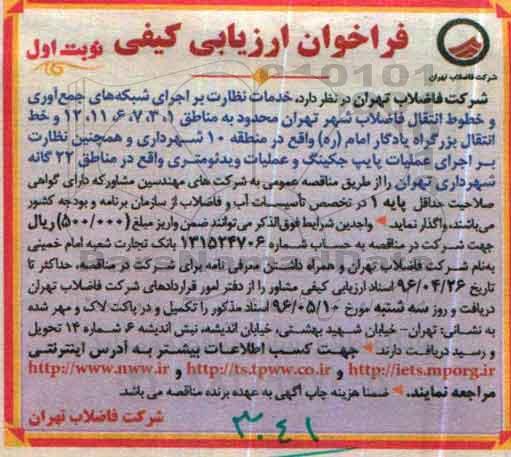 فراخوان ارزیابی کیفی نوبت اول
شرکت فاضلاب تهران
شرکت فاضلاب تهران در نظر دارد، خدمات نظارت بر اجرای شبکه‌های جمع‌آوری
و خطوط انتقال فاضلاب شهر تهران محدود به مناطق ۱، ۳، ۷، ۶، ۱۱، ۱۲ و خط
انتقال بزرگراه یادگار امام (ره) واقع در منطقه ۱۰ شهرداری و همچنین نظارت
بر اجرای عملیات پایپ جکینگ و عملیات ویدئومتری واقع در مناطق ۲۲ گانه
شهرداری تهران را از طریق مناقصه عمومی به شرکت های مهندسین مشاور که دارای گواهی
صلاحیت حداقل پایه ۱ در تخصص تأسیسات آب و فاضلاب از سازمان برنامه و بودجه کشور
می‌باشند، واگذار نماید. واجدین شرایط فوق‌الذکر می‌توانند ضمن واریز مبلغ (۵۰۰/۰۰۰) ریال
جهت شرکت در مناقصه به حساب شماره ۱۳۱۵۲۴۷۰۶ بانک تجارت شعبه امام خمینی
به‌نام شرکت فاضلاب تهران و همراه داشتن معرفی نامه برای شرکت در مناقصه، حداکثر تا
تاریخ ۹۶/۰۴/۲۶ اسناد ارزیابی کیفی مشاور را از دفتر امور قراردادهای شرکت فاضلاب تهران
دریافت و روز سه شنبه مورخ ۹۶/۰۵/۱۰ اسناد مذکور را تکمیل و در پاکت لاک و مهر شده
به نشانی: تهران- خیابان شهید بهشتی، خیابان اندیشه، نبش اندیشه ۶ شماره ۱۴ تحویل
و رسید دریافت دارند. جهت کسب اطلاعات بیشتر به آدرس اینترنتی
http://iets.mporg.ir و http://ts.tpww.co.ir و http://www.nww.ir
مراجعه نمایند. ضمنا هزینه چاپ آگهی به عهده برنده مناقصه می باشد.
شرکت فاضلاب تهران
۳۰۴۱